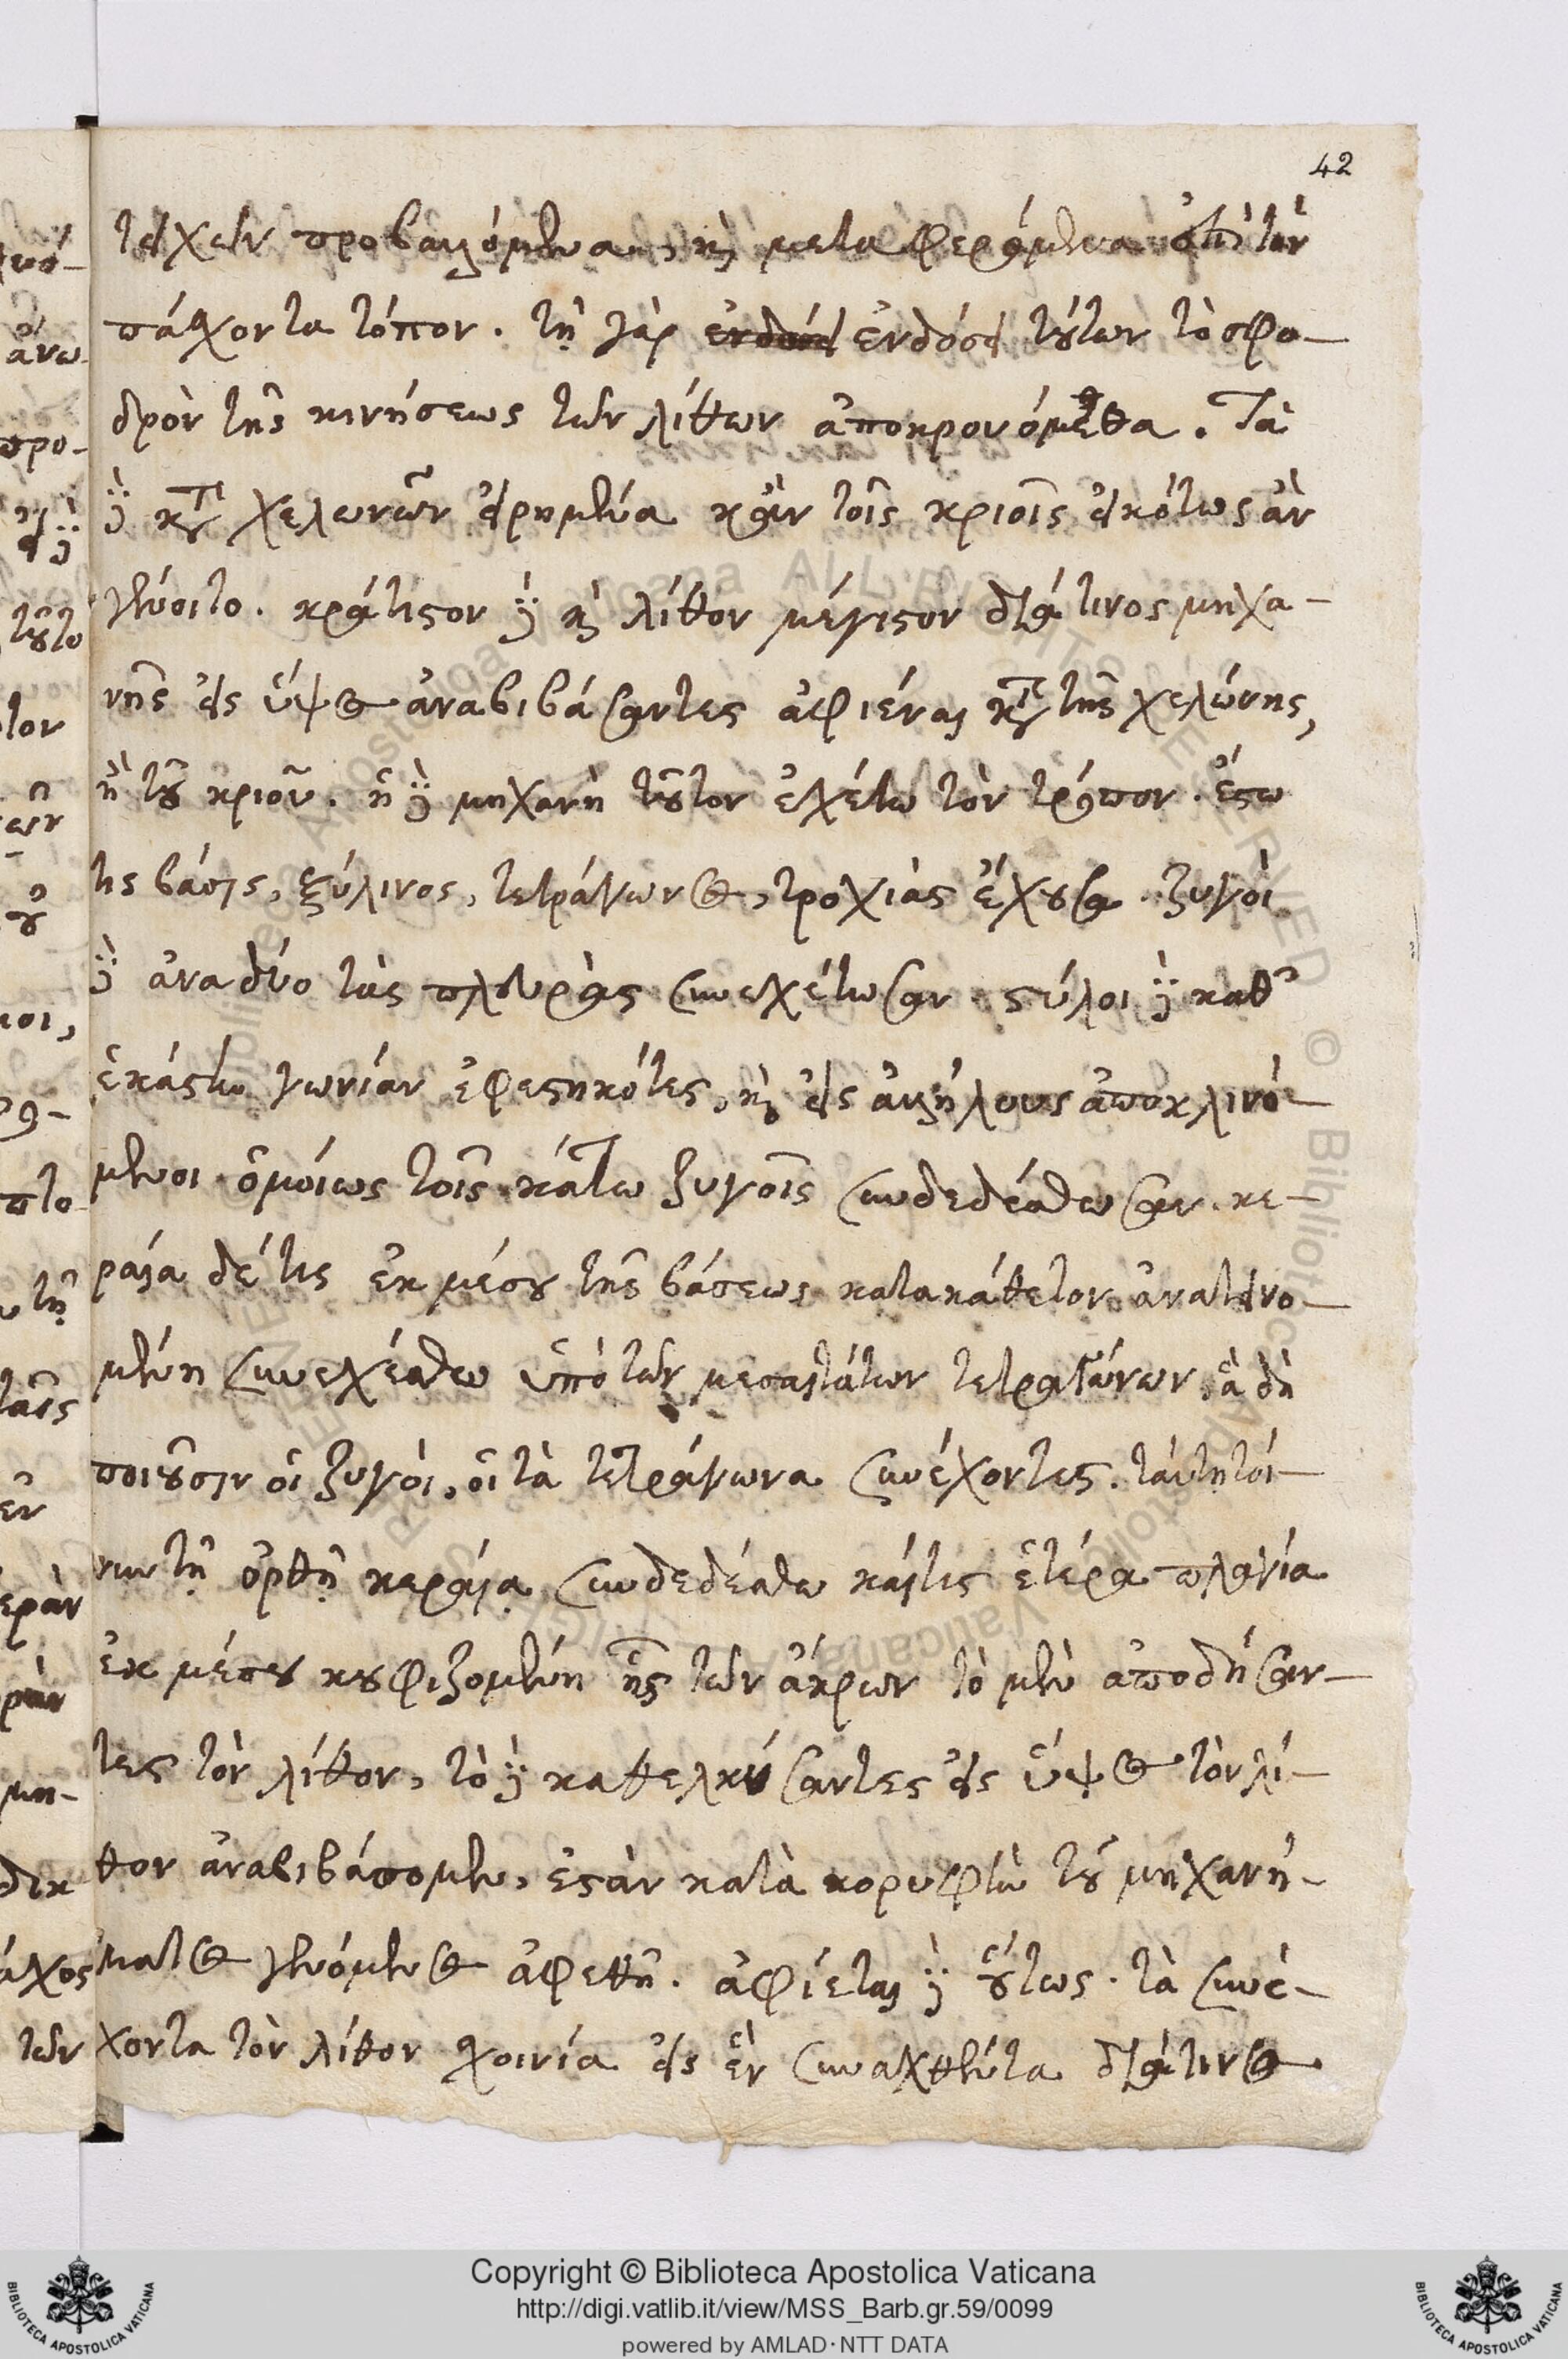 42
τειχῶν προβαλλόμενα, καὶ μεταφερόμενα ἐπὶ τὸν
πάσχοντα τόπον. τῇ γὰρ ἐνδόσει τούτων τὸ σφο-
δρὸν τῆς κινήσεως τῶν λίθων ἀποκρουόμεθα. Τὰ
δὲ κατὰ χελωνῶν εἰρημένα κἀν τοῖς κριοῖς εἰκότως ἂν
γένοιτο. κράτιστον δὲ καὶ λίθον μέγιστον διά τινος μηχα-
νῆς εἰς ὕψος ἀναβιβάσαντες ἀφιέναι κατὰ τῆς χελώνης,
ἢ τοῦ κριοῦ. ἡ δὲ μηχανὴ τοῦτον ἐχέτω τὸν τρόπον. ἔστω
τις βάσις, ξύλινος, τετράγωνος, τροχιὰς ἔχουσα. ζυγοὶ
δὲ ἀνὰ δύο τὰς πλευρὰς συνεχέτωσαν. στύλοι δὲ καθ'
ἑκάστην γωνίαν ἐφεστηκότες, καὶ εἰς ἀλλήλους ἀποκλινό-
μενοι ὁμοίως τοῖς κάτω ζυγοῖς συνδεδέσθωσαν. κε-
ραία δέ τις ἐκ μέσου τῆς βάσεως κατακάθετον ἀνατεινο-
μένη συνεχέσθω ὑπὸ τῶν μεσαιτάτων τετραγώνων, ἃ δὴ
ποιοῦσιν οἱ ζυγοί, οἱ τὰ τετράγωνα συνέχοντες. ταύτῃ τοί-
νυν τῇ ὀρθῇ κεραίᾳ συνδεδέσθω καί τις ἑτέρα πλαγία
ἐκ μέσου κουφιζομένη ἧς τῶν ἄκρων τὸ μὲν ἀποδήσαν-
τες τὸν λίθον, τὸ δὲ καθελκύσαντες εἰς ὕψος τὸν λί-
θον ἀναβιβάσομεν, ἐστὰν κατὰ κορυφὴν τοῦ μηχανή-
ματος γενόμενος ἀφεθῇ. ἀφίεται δὲ οὕτως. τὰ συνέ-
χοντα τὸν λίθον σχοινία εἰς ἓν συναχθέντα διά τινος
Copyright © Biblioteca Apostolica Vaticana
http://digi.vatlib.it/view/MSS_Barb.gr.59/0099
powered by AMLAD·NTT DATA